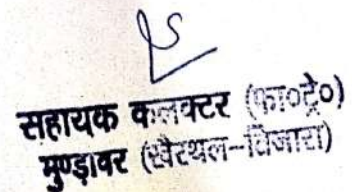 सहायक कलक्टर (फा०ट्रे०)
मुण्डावर (खैरथल-तिजारा)